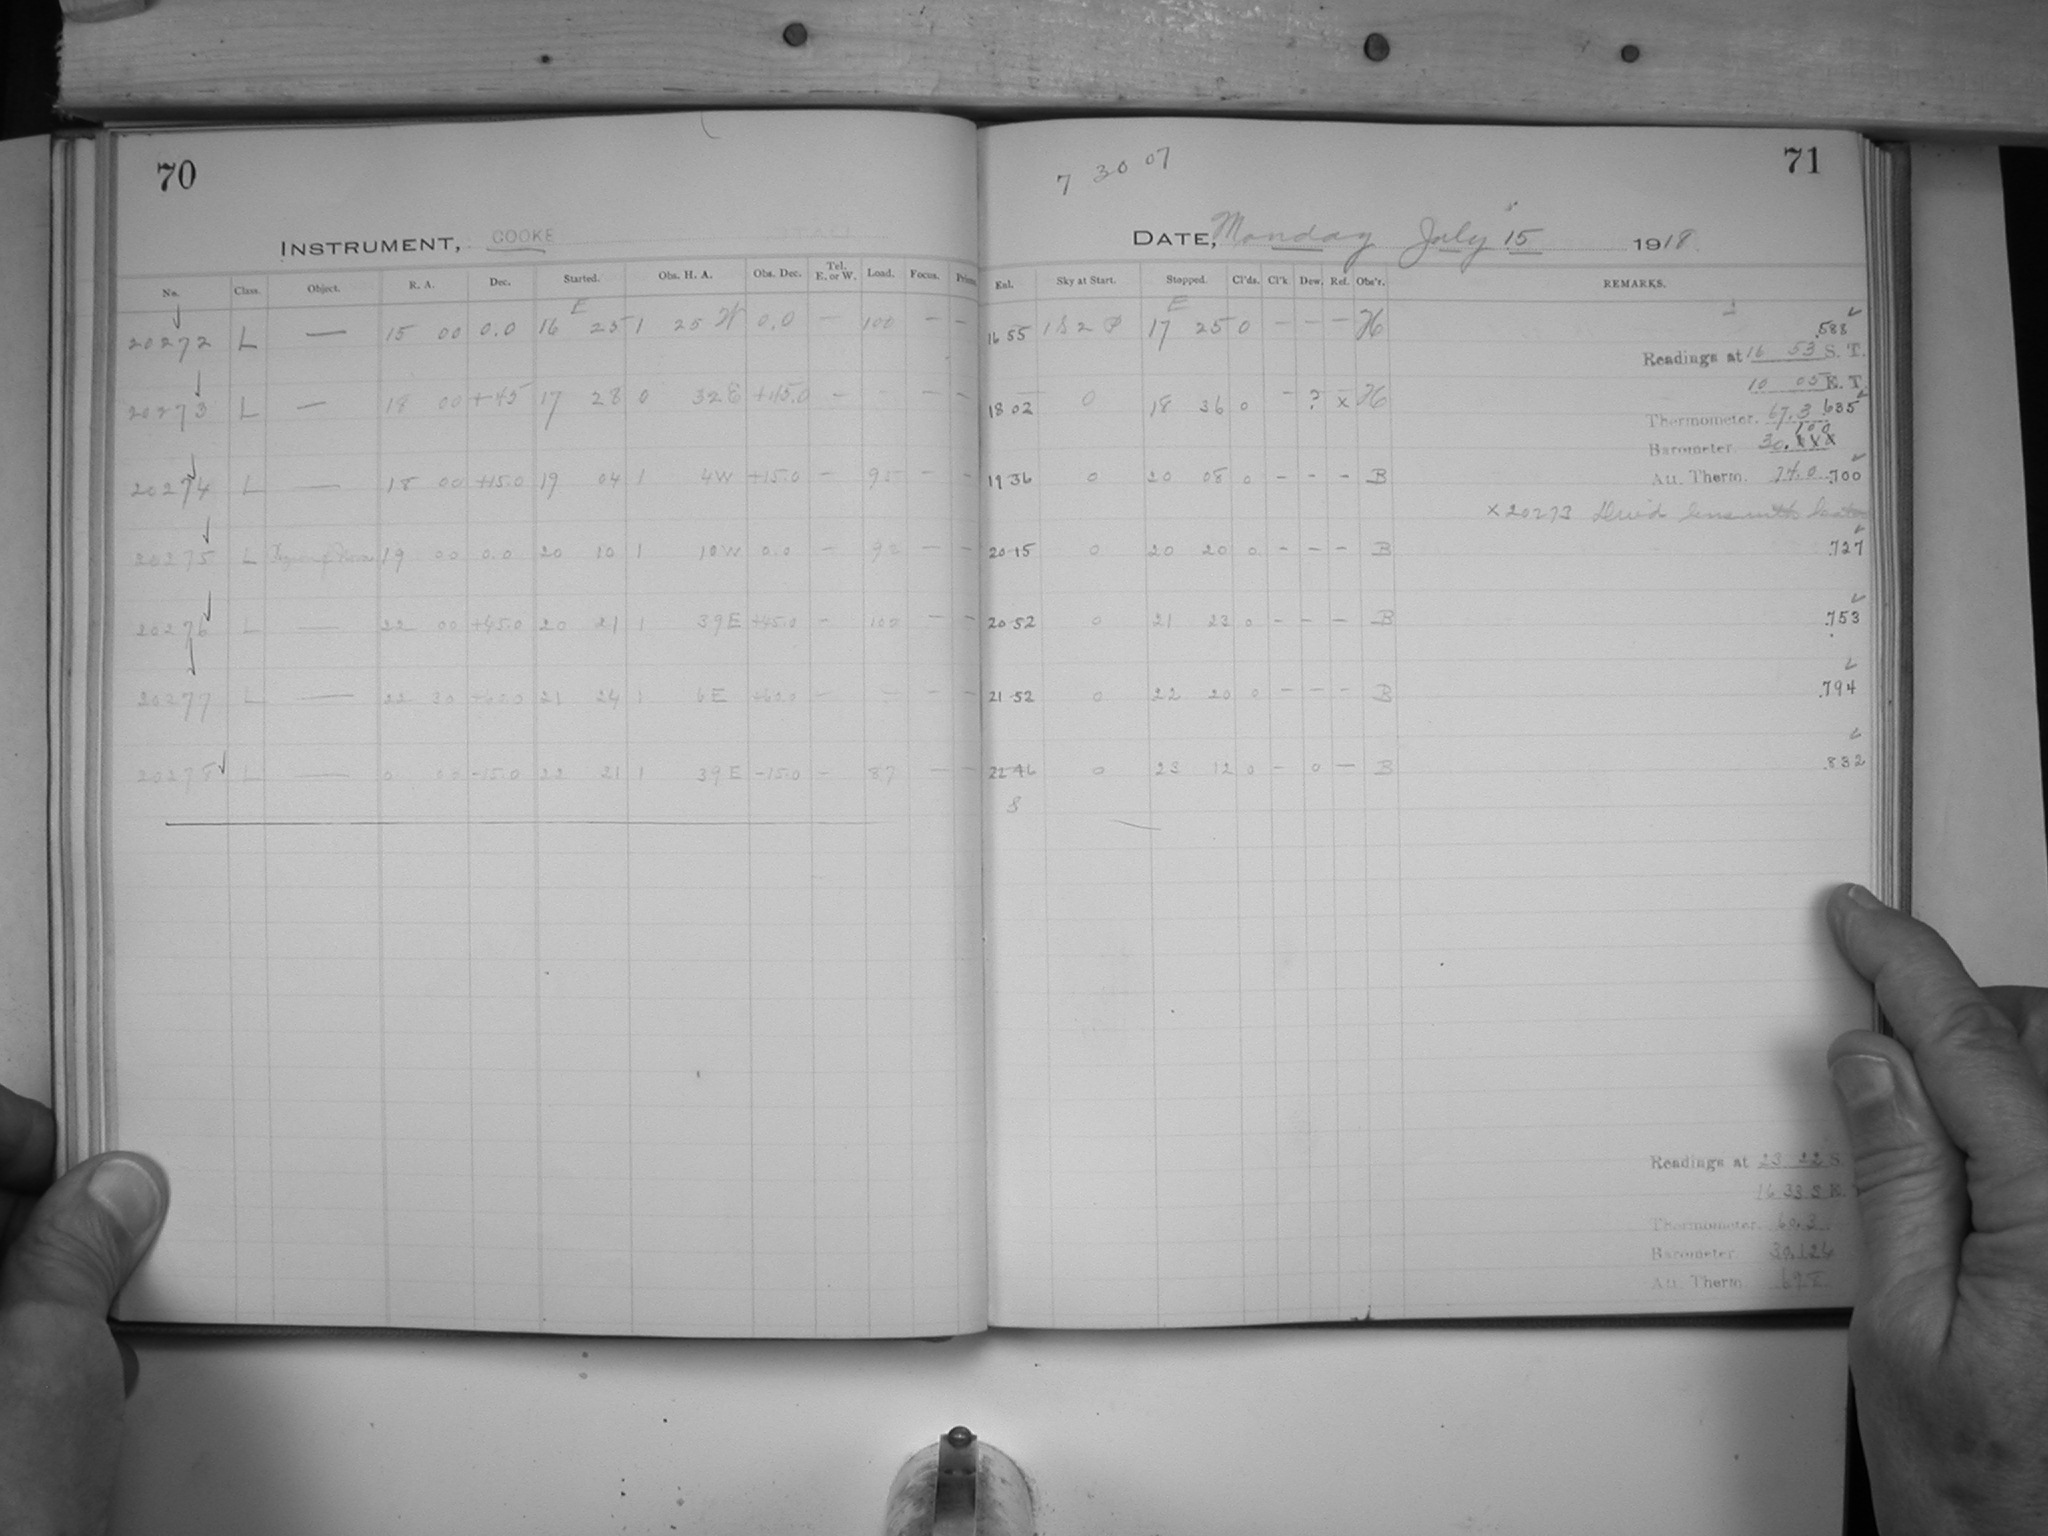 70
INSTRUMENT, COOKE
No. Class. Object. R. A. Dec. Started. Obs. H. A. Obs. Dec. Tel. E. or W. Load. Focus.
E
20272 L — 15 00 0.0 16 25 1 25 W 0.0 — 100 — —
20273 L — 18 00 +45 17 28 0 32 E +45.0 — — —
20274 L — 18 00 +15.0 19 04 1 4 W +15.0 — 95 — —
20275 L 19 00 0.0 20 10 1 10 W 0.0 — — —
20276 L — 22 00 +45.0 20 21 1 39 E +45.0 — 100 — —
20277 L — 22 30 +60.0 21 24 1 6 E +60.0 — — —
20278 L — 0 00 -15.0 22 21 1 39 E -15.0 — 87 — —
71
7 30 07
DATE, Monday July 15 1918
Enl. Sky at Start. Stopped. Cl'ds. Cl'k Dew. Ref. Obs'r. REMARKS.
E
16 55 1 S 2 P 17 25 0 — — — H .588
Readings at 16 53 S. T.
10 05 E. T.
18 02 0 18 36 0 — ? x H .635
Thermometer. 67.3
100
Barometer 30.
19 36 0 20 08 0 — — — B .700
Att. Therm. 74.0
x 20273 Dried lens with
20 15 0 20 20 0 — — — B .727
20 52 0 21 23 0 — — — B .753
21 52 0 22 20 0 — — — B .794
22 46 0 23 12 0 — 0 — B .832
8
Readings at 23 22 S.
16 33 E.
Thermometer. 60.3
Barometer 30.126
Att. Therm.